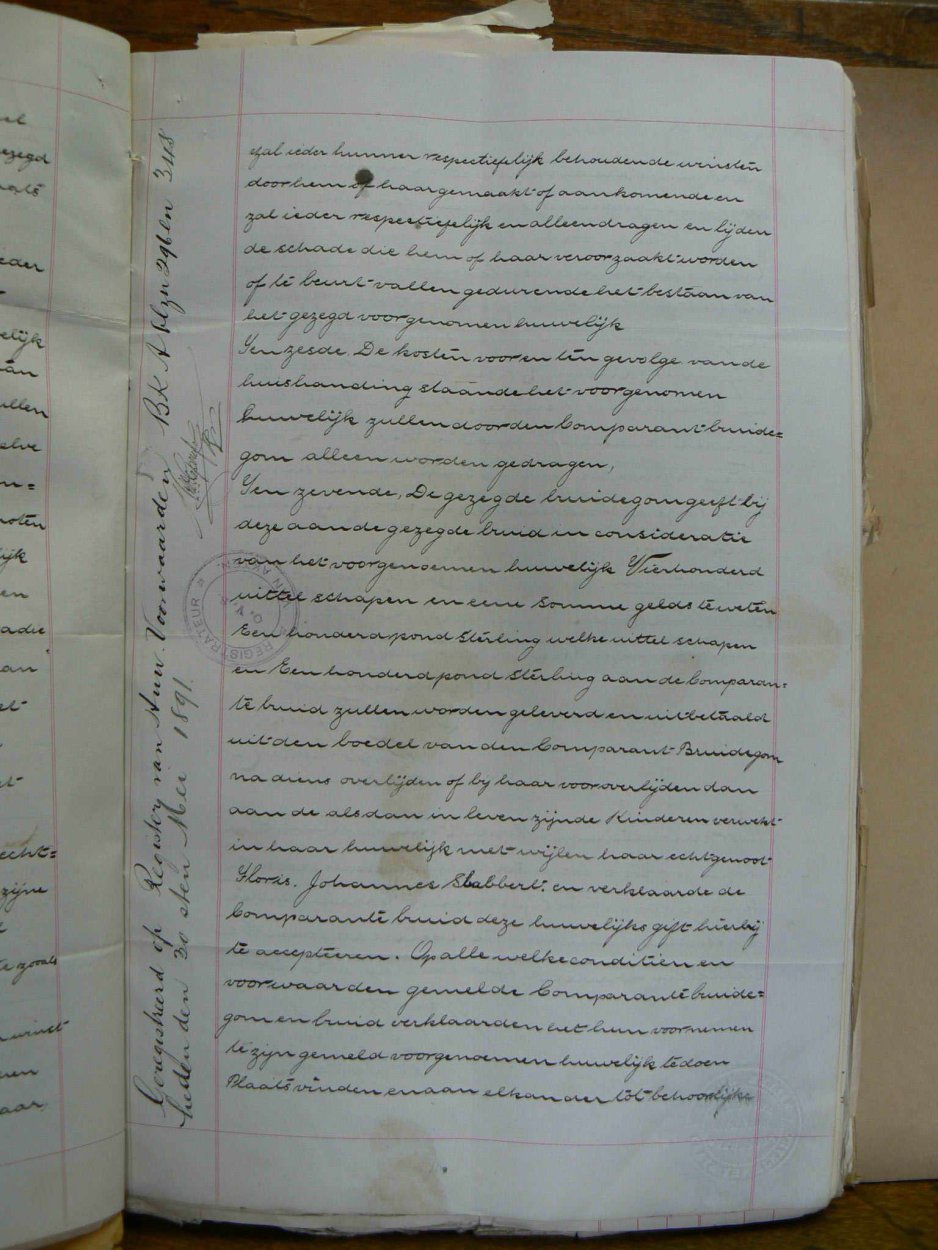 zal ieder hunner respectiefelijk behouden de winsten
door hem of haar gemaakt of aankomende en
zal ieder respectiefelijk en alleen dragen en lijden
de schade die hem of haar veroorzaakt worden
of te beurt vallen gedurende het bestaan van
het gezegd voorgenomen huwelijk
Ten zesde. De kosten voor en ten gevolge van de
huishanding staande het voorgenomen
huwelijk zullen door den Comparant bruide=
gom alleen worden gedragen,
Ten zevende, De gezegde bruidegom geeft bij
deze aan de gezegde bruid in consideratie
van het voorgenoemen huwelijk Vierhonderd
uittel schapen en eene somme gelds te weten
Een honderd pond Sterling welke uittel schapen
en Een honderd pond Sterling aan de Comparan=
te bruid zullen worden geleverd en uitbetaald
uit den boedel van den Comparant Bruidegom
na diens overlijden of by haar vooroverlijden dan
aan de alsdan in leven zijnde Kinderen verwekt
in haar huwelijk met wijlen haar echtgenoot
Floris. Johannes Slabbert. en verklaarde de
Comparante bruid deze huwelijks gift hierbij
te accepteeren. Op alle welke conditiën en
voorwaarden gemelde Comparante bruide=
gom en bruid verklaarden het hun voornemen
te zijn gemeld voorgenoemen huwelijk te doen
Plaats vinden en aan elkander tot behoorlijke
Geregistreerd op Register van Huw. Voorwaarden BK A Alzn 296 en 348
heden den 30 sten Mei 1891.
REGISTRATEUR
O.V.S.
ezegd
eder
elijk
ullen
elve
noten
lijk
en
adie
an
echt=
zijne
te zooals
winst
aar